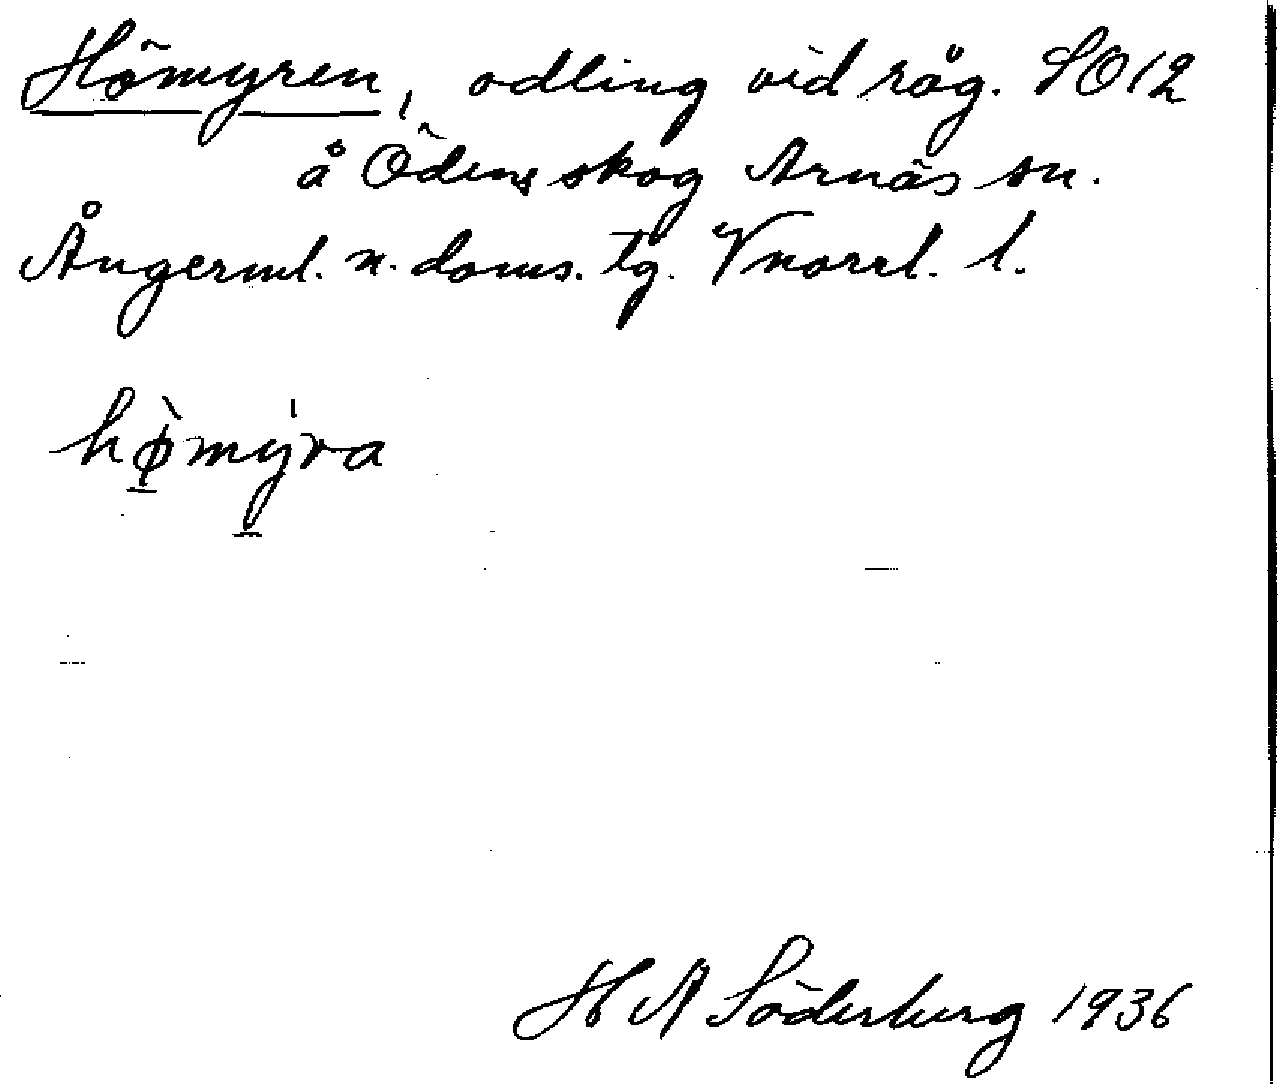 Hömyren, odling vid råg. SO12
å Ödens skog Arnäs sn.
Ångerml. n. doms. tg. Vnorrl. l.
hø̀mýra
H A Söderberg 1936